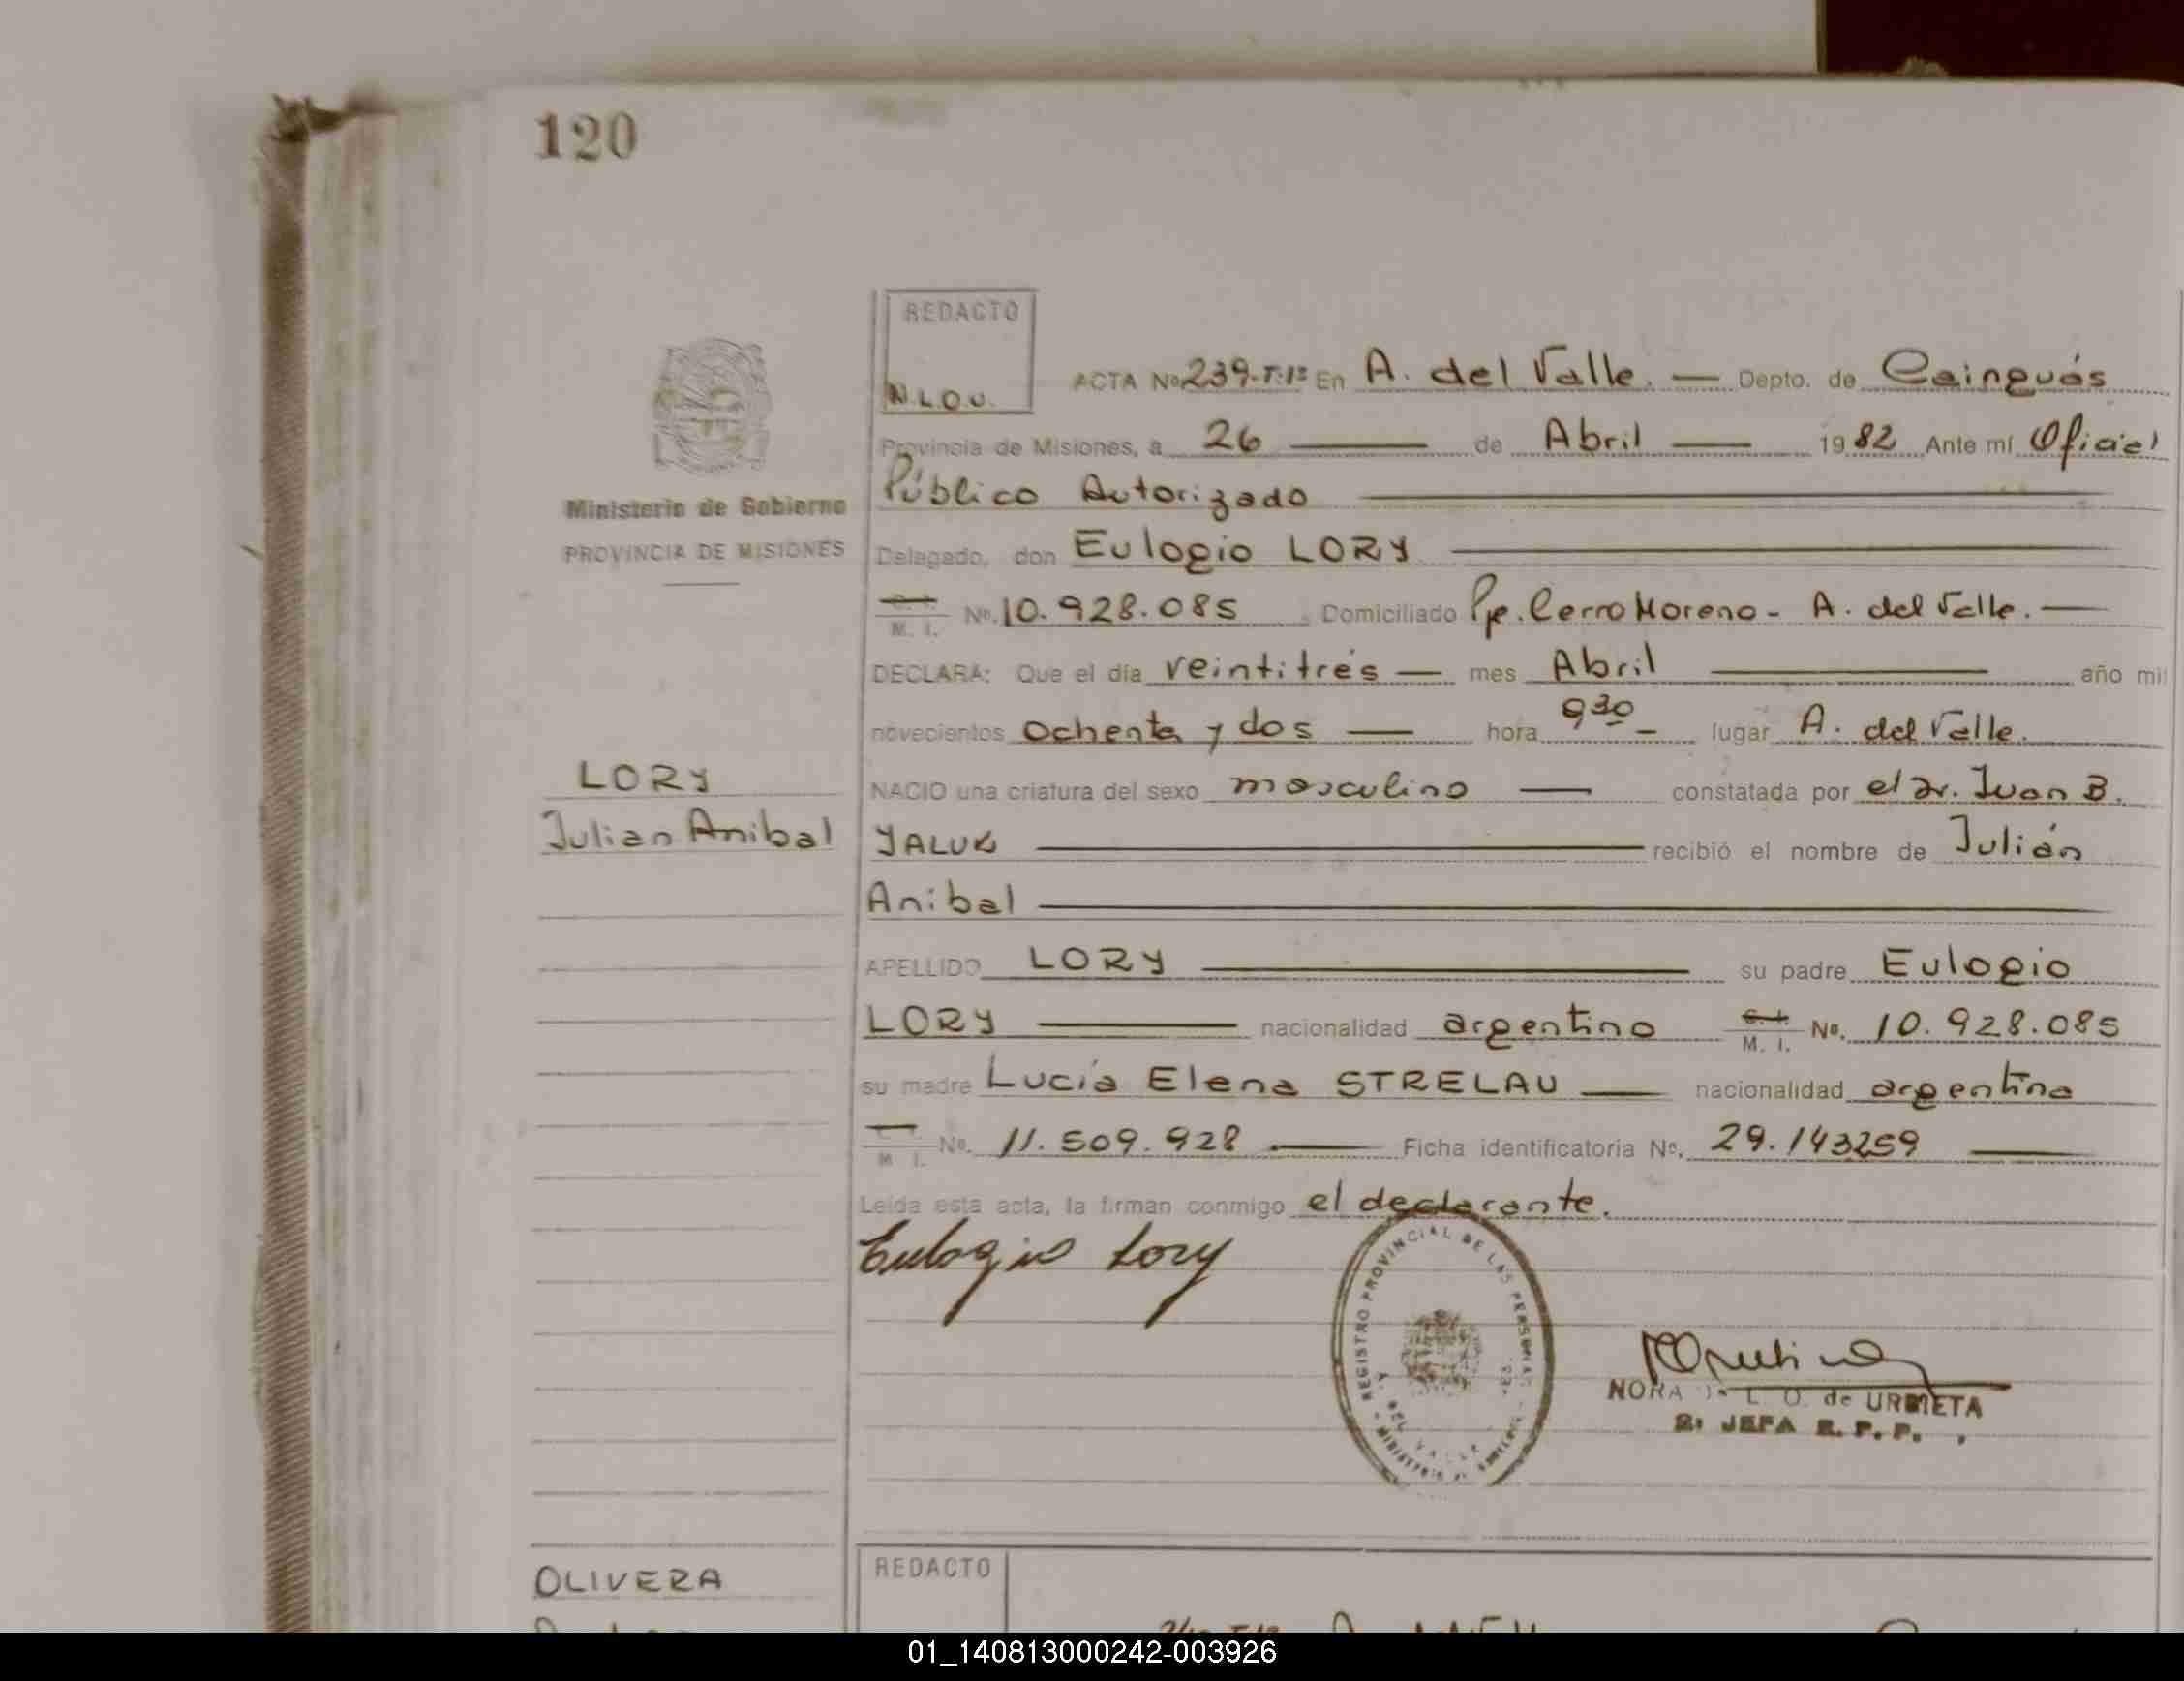 120
REDACTO
N.L.O.U.
ACTA No 239-T.1º En A. del Valle. — Depto. de Cainguás
Provincia de Misiones, a 26 — de Abril — 1982 Ante mí Oficial
Público Autorizado
Ministerio de Gobierno
PROVINCIA DE MISIONES
Delegado, don Eulogio LORY
C. I.
M. I. No. 10.928.085 Domiciliado Pje. Cerro Moreno - A. del Valle. —
DECLARA: Que el día veintitrés — mes Abril — año mil
novecientos ochenta y dos — hora 9 30 — lugar A. del Valle.
LORY
Julian Anibal
NACIO una criatura del sexo masculino — constatada por el Dr. Juan B.
YALUK — recibió el nombre de Julián
Anibal
APELLIDO LORY — su padre Eulogio
LORY — nacionalidad argentino C. I.
M. I. No. 10.928.085
su madre Lucía Elena STRELAU — nacionalidad argentina
M. I. No. 11.509.928 — Ficha identificatoria No. 29.143259 —
Leída esta acta, la firman conmigo el declarante.
Eulogio Lory
REGISTRO PROVINCIAL DE LAS PERSONAS
A. DEL VALLE
NORA L. O. de URBIETA
2ª JEFA R. P. P.
OLIVERA
REDACTO
01_140813000242-003926